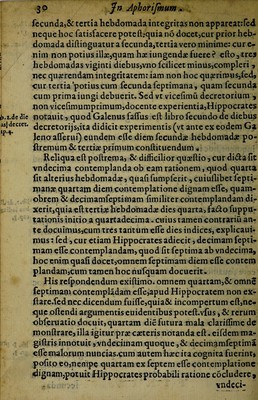 30 In Aphorismum.
secunda, & tertia hebdomada integritas non appareat: sed
neque hoc satisfacere potest; quia nō docet, cur prior heb-
domada distinguatur a secunda, tertia vero minime: cur e-
nim non potius illæ, quam hæ iungendæ fuere? esto, tres
hebdomadas viginti diebus, vno scilicet minus, compleri,
nec quærendam integritatem: iam non hoc quærimus, sed,
cur tertia potius cum secunda septimana, quam secunda
cum prima iungi debuerit. Sed vt vicesimū decretorium,
non vicesimumprimum, docente experientia, Hippocrates
notauit, quod Galenus fassus est libro secundo de diebus
decretorijs, ita didicit experimentis (vt ante ex eodem Ga
leno asserui) eundem esse diem secundæ hebdomadæ po-
stremum & tertiæ primum constituendum.
Reliqua est postrema, & difficilior quæstio, cur dicta sit
vndecima contemplanda ob eam rationem, quod quarta
sit alterius hebdomadæ, quasi sumpserit, cuiuslibet septi-
manæ quartam diem contemplatione dignam esse, quam-
obrem & decimamseptimam similiter contemplandam di-
xerit, quia est tertiæ hebdomadæ dies quarta, facto suppu-
tationis initio a quartadecima. cuius tamen contrariū an-
te docuimus, cum tres tantum esse dies indices, explicaui-
mus: sed, cur etiam Hippocrates adiecit, decimam septi-
mam esse contemplandam, quod sit septima ab vndecima,
hoc enim quasi docet, omnem septimam diem esse contem
plandam, cum tamen hoc nusquam docuerit.
His respondendum existimo. omnem quartam, & omnē
septimam contemplādam esse, apud Hippocratem non ex-
stare. sed nec dicendum fuisse, quia & incompertum est, ne-
que ostendi argumentis euidentibus potest. vsus, & rerum
obseruatio docuit, quartam diē futura mala clarissime de
monstrare, illa igitur præ cæteris notanda est. eissdem ma-
gistris innotuit, vndecimam quoque, & decimamseptimā
esse malorum nuncias. cum autem hæc ita cognita fuerint,
posito eo, nempe quartam ex septem esse contemplatione
dignam, potuit Hippocrates probabili ratione cōcludere,
vndeci-